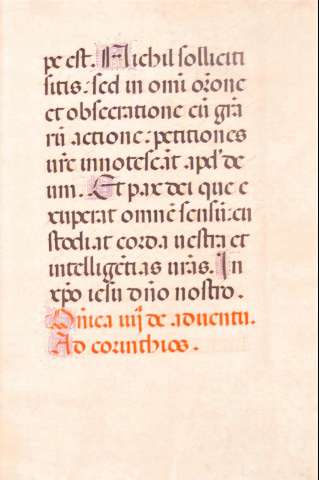 pe est. Nichil solliciti
sitis: sed in omi orōne
et obsecratione cū gra
rū actione: petitiones
ure innotescāt apd' de
um. Et pax dei que e
xuperat omnē sensū: cu
stodiat corda uestra et
intelligētias uras. In
xp̄o iesu dño nostro.
Dñica iiij de aduentu.
Ad corinthios.